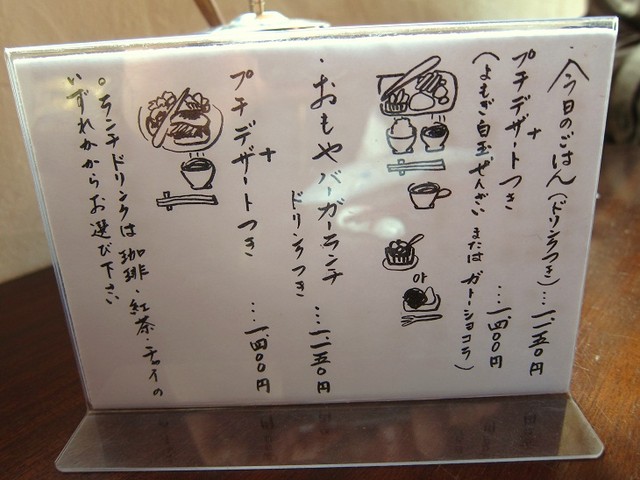 ・今日のごはん(ドリンクつき)…一、一五〇円
+
プチデザートつき …一、四〇〇円
(よもぎ白玉ぜんざい または ガトーショコラ)
or
・おもやバーガーランチ
ドリンクつき …一、一五〇円
+
プチデザートつき …一、四〇〇円
○ランチドリンクは珈琲・紅茶・チャイの
いずれかからお選び下さい